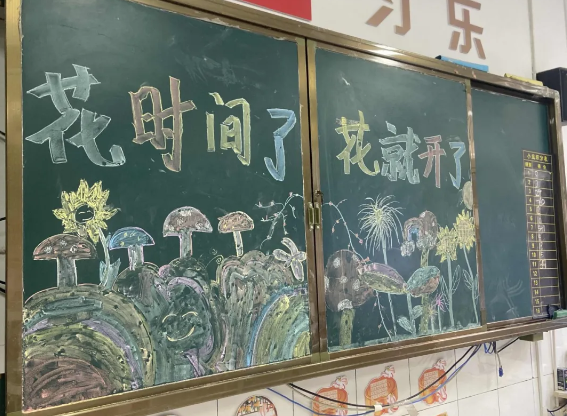 习乐
花时间了 花就开了